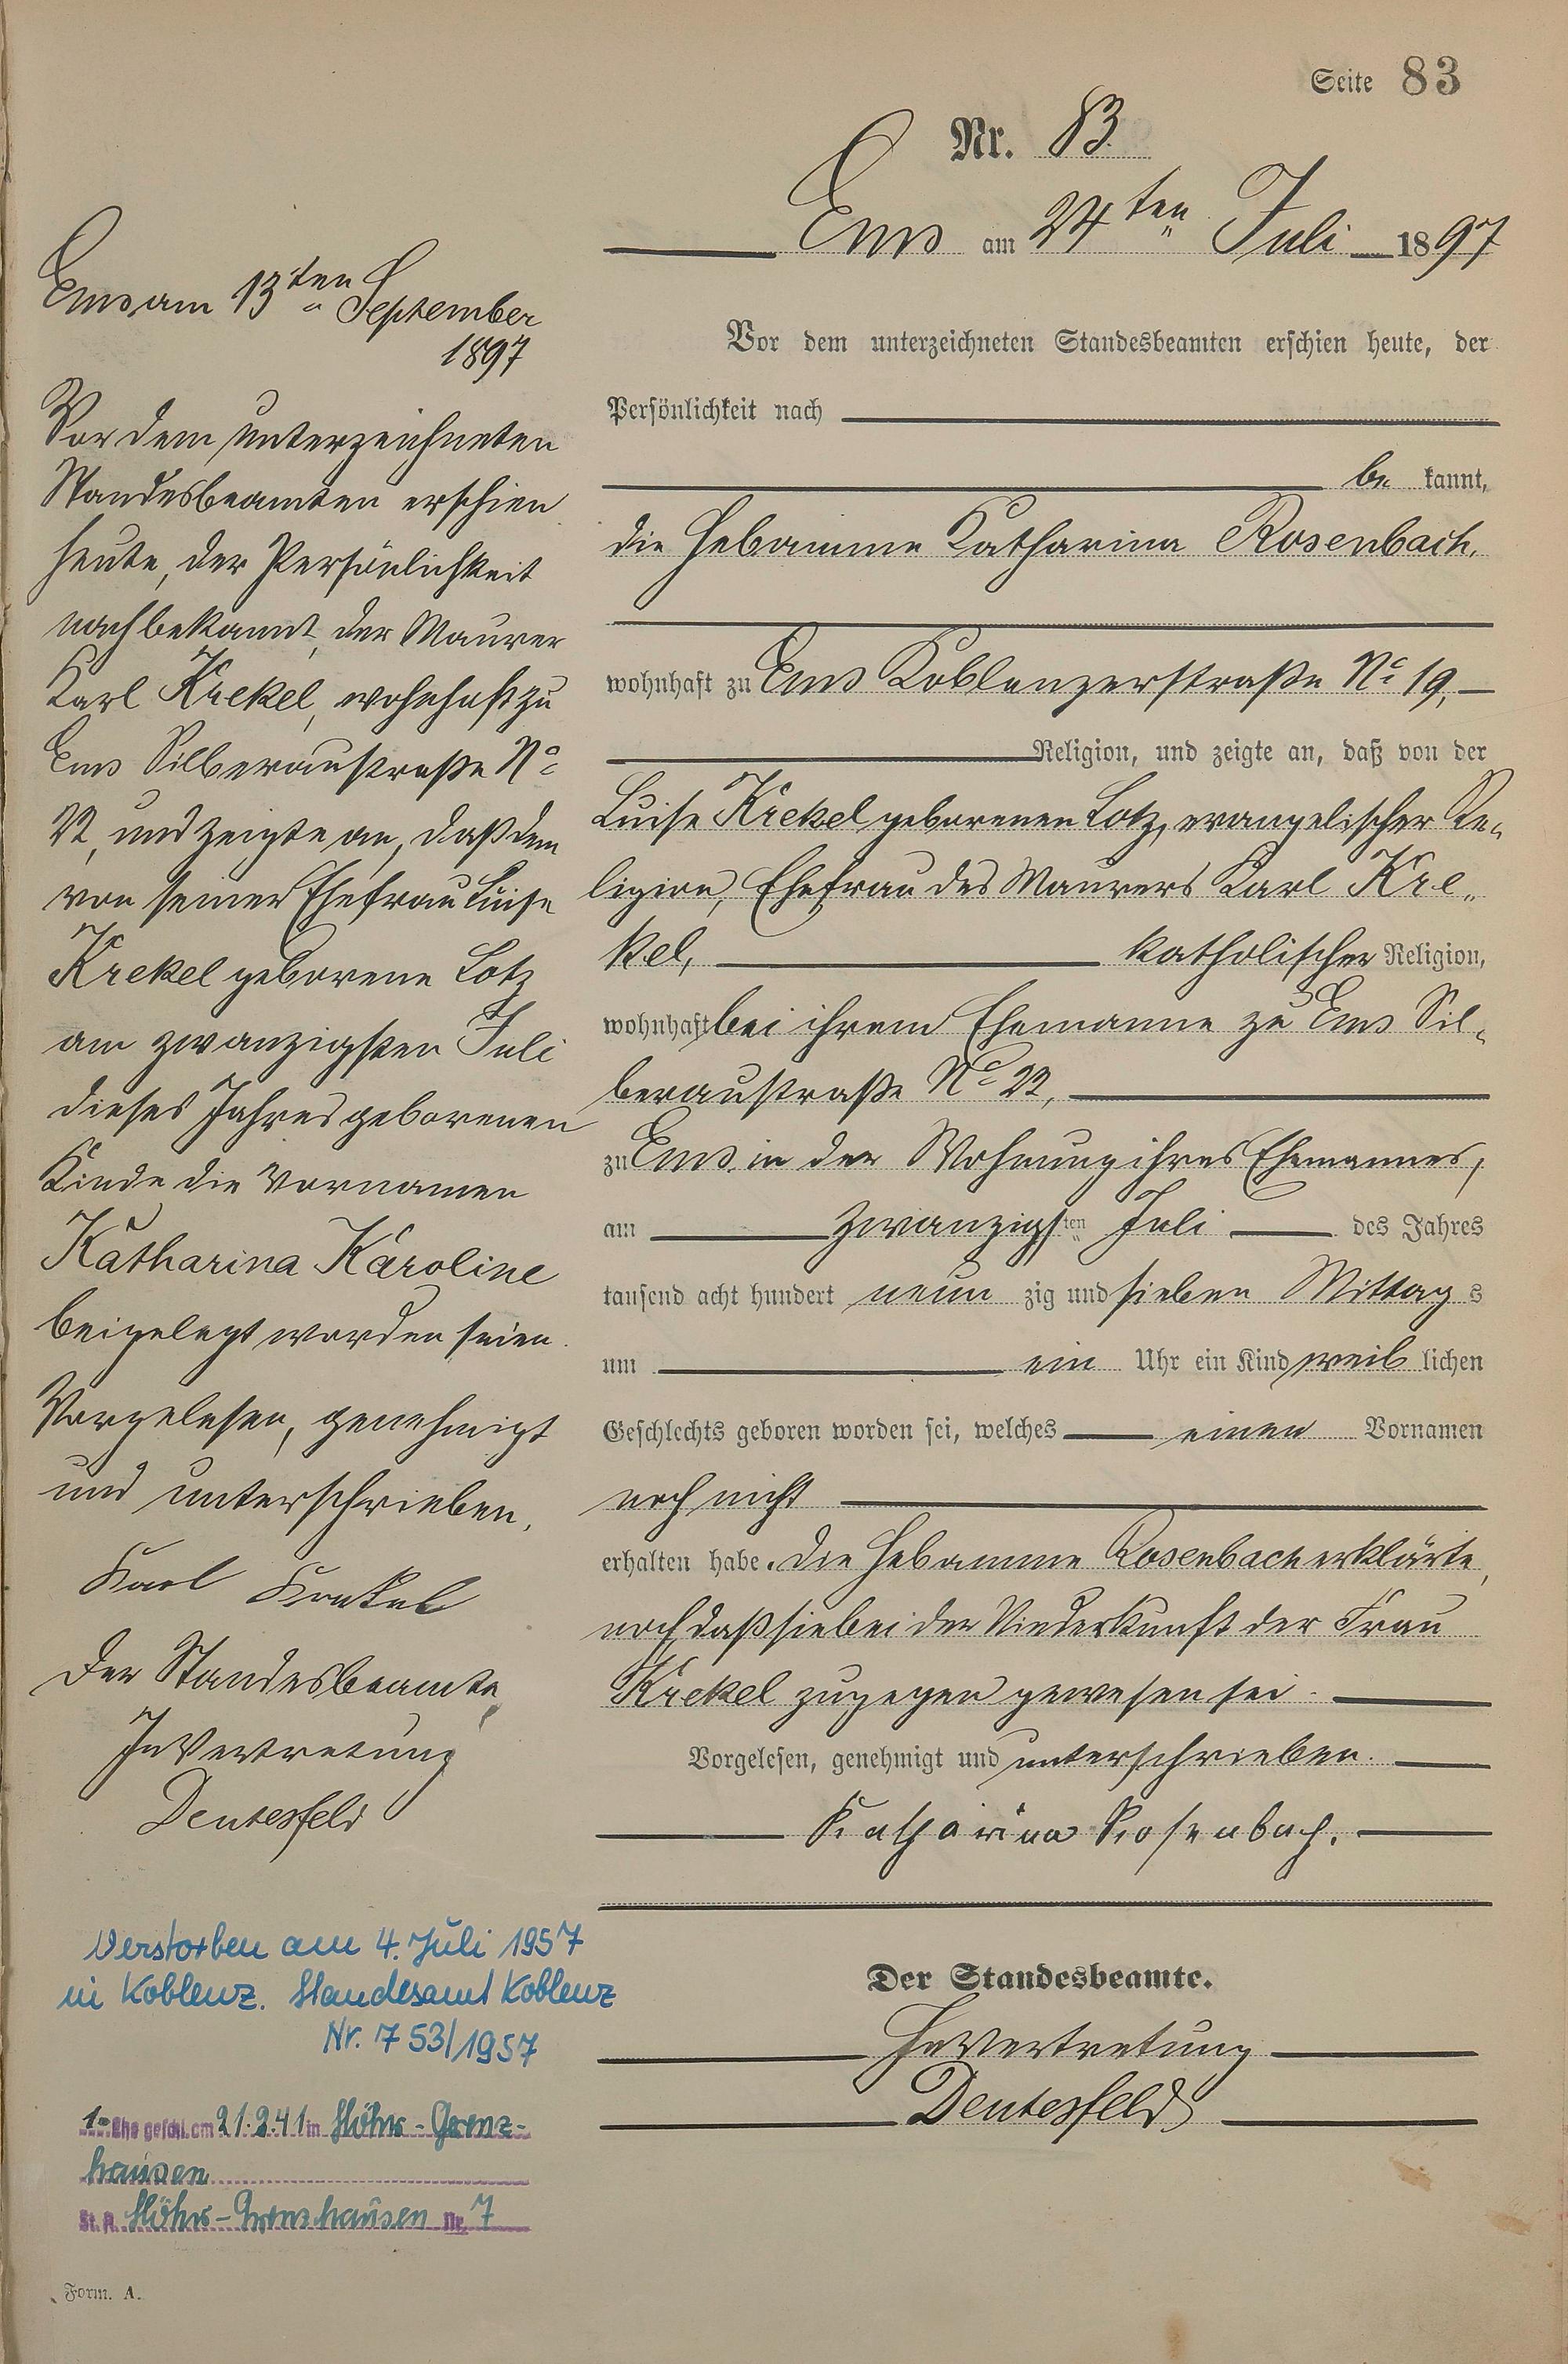 Seite 83
Nr. 83.
Ems am 24ten Juli 1897
Vor dem unterzeichneten Standesbeamten erschien heute, der
Persönlichkeit nach
be kannt,
die Hebamme Katharina Rosenbach,
wohnhaft zu Ems Koblenzerstraße No 19,
Religion, und zeigte an, daß von der
Luise Krekel geborenen Lotz, evangelischer Re-
ligion, Ehefrau des Maurers Karl Kre-
kel, katholischer Religion,
wohnhaft bei ihrem Ehemanne zu Ems Sil-
beraustraße No 22,
zu Ems in der Wohnung ihres Ehemannes,
am zwanzigsten Juli des Jahres
tausend acht hundert neun zig und sieben Mittag s
um ein Uhr ein Kind weib lichen
Geschlechts geboren worden sei, welches einen Vornamen
noch nicht
erhalten habe. Die Hebamme Rosenbach erklärte,
noch, daß sie bei der Niederkunft der Frau
Krekel zugegen gewesen sei.
Vorgelesen, genehmigt und unterschrieben.
Katharina Rosenbach.
Der Standesbeamte.
In Vertretung
Deutesfeld
Ems am 13ten September
1897
Vor dem unterzeichneten
Standesbeamten erschien
heute, der Persönlichkeit
nach bekannt, der Maurer
Karl Krekel, wohnhaft zu
Ems Silberaustraße No
22, und zeigte an, daß dem
von seiner Ehefrau Luise
Krekel geborene Lotz
am zwanzigsten Juli
dieses Jahres geborenen
Kinde die Vornamen
Katharina Karoline
beigelegt worden seien.
Vorgelesen, genehmigt
und unterschrieben.
Karl Krekel
Der Standesbeamte,
In Vertretung
Deutesfeld
Verstorben am 4. Juli 1957
in Koblenz. Standesamt Koblenz
Nr. 753/1957
1. Ehe geschl. am 21.2.41 in Höhr-Grenz-
hausen
St. A. Höhr-Grenzhausen Nr. 7
Form. A.